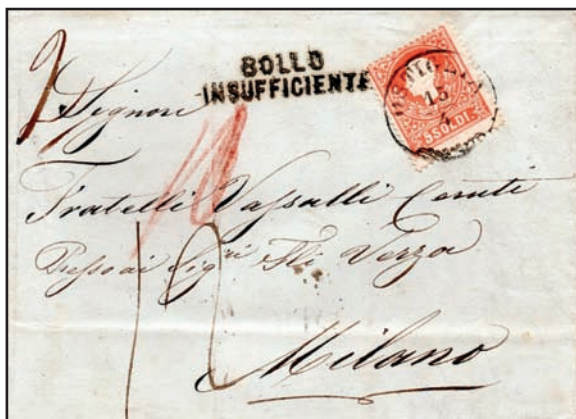 BOLLO
INSUFFICIENTE
15
5 SOLDI
Signori
Fratelli Vassalli
Presso ai Sig.ri Flli Verza
Milano